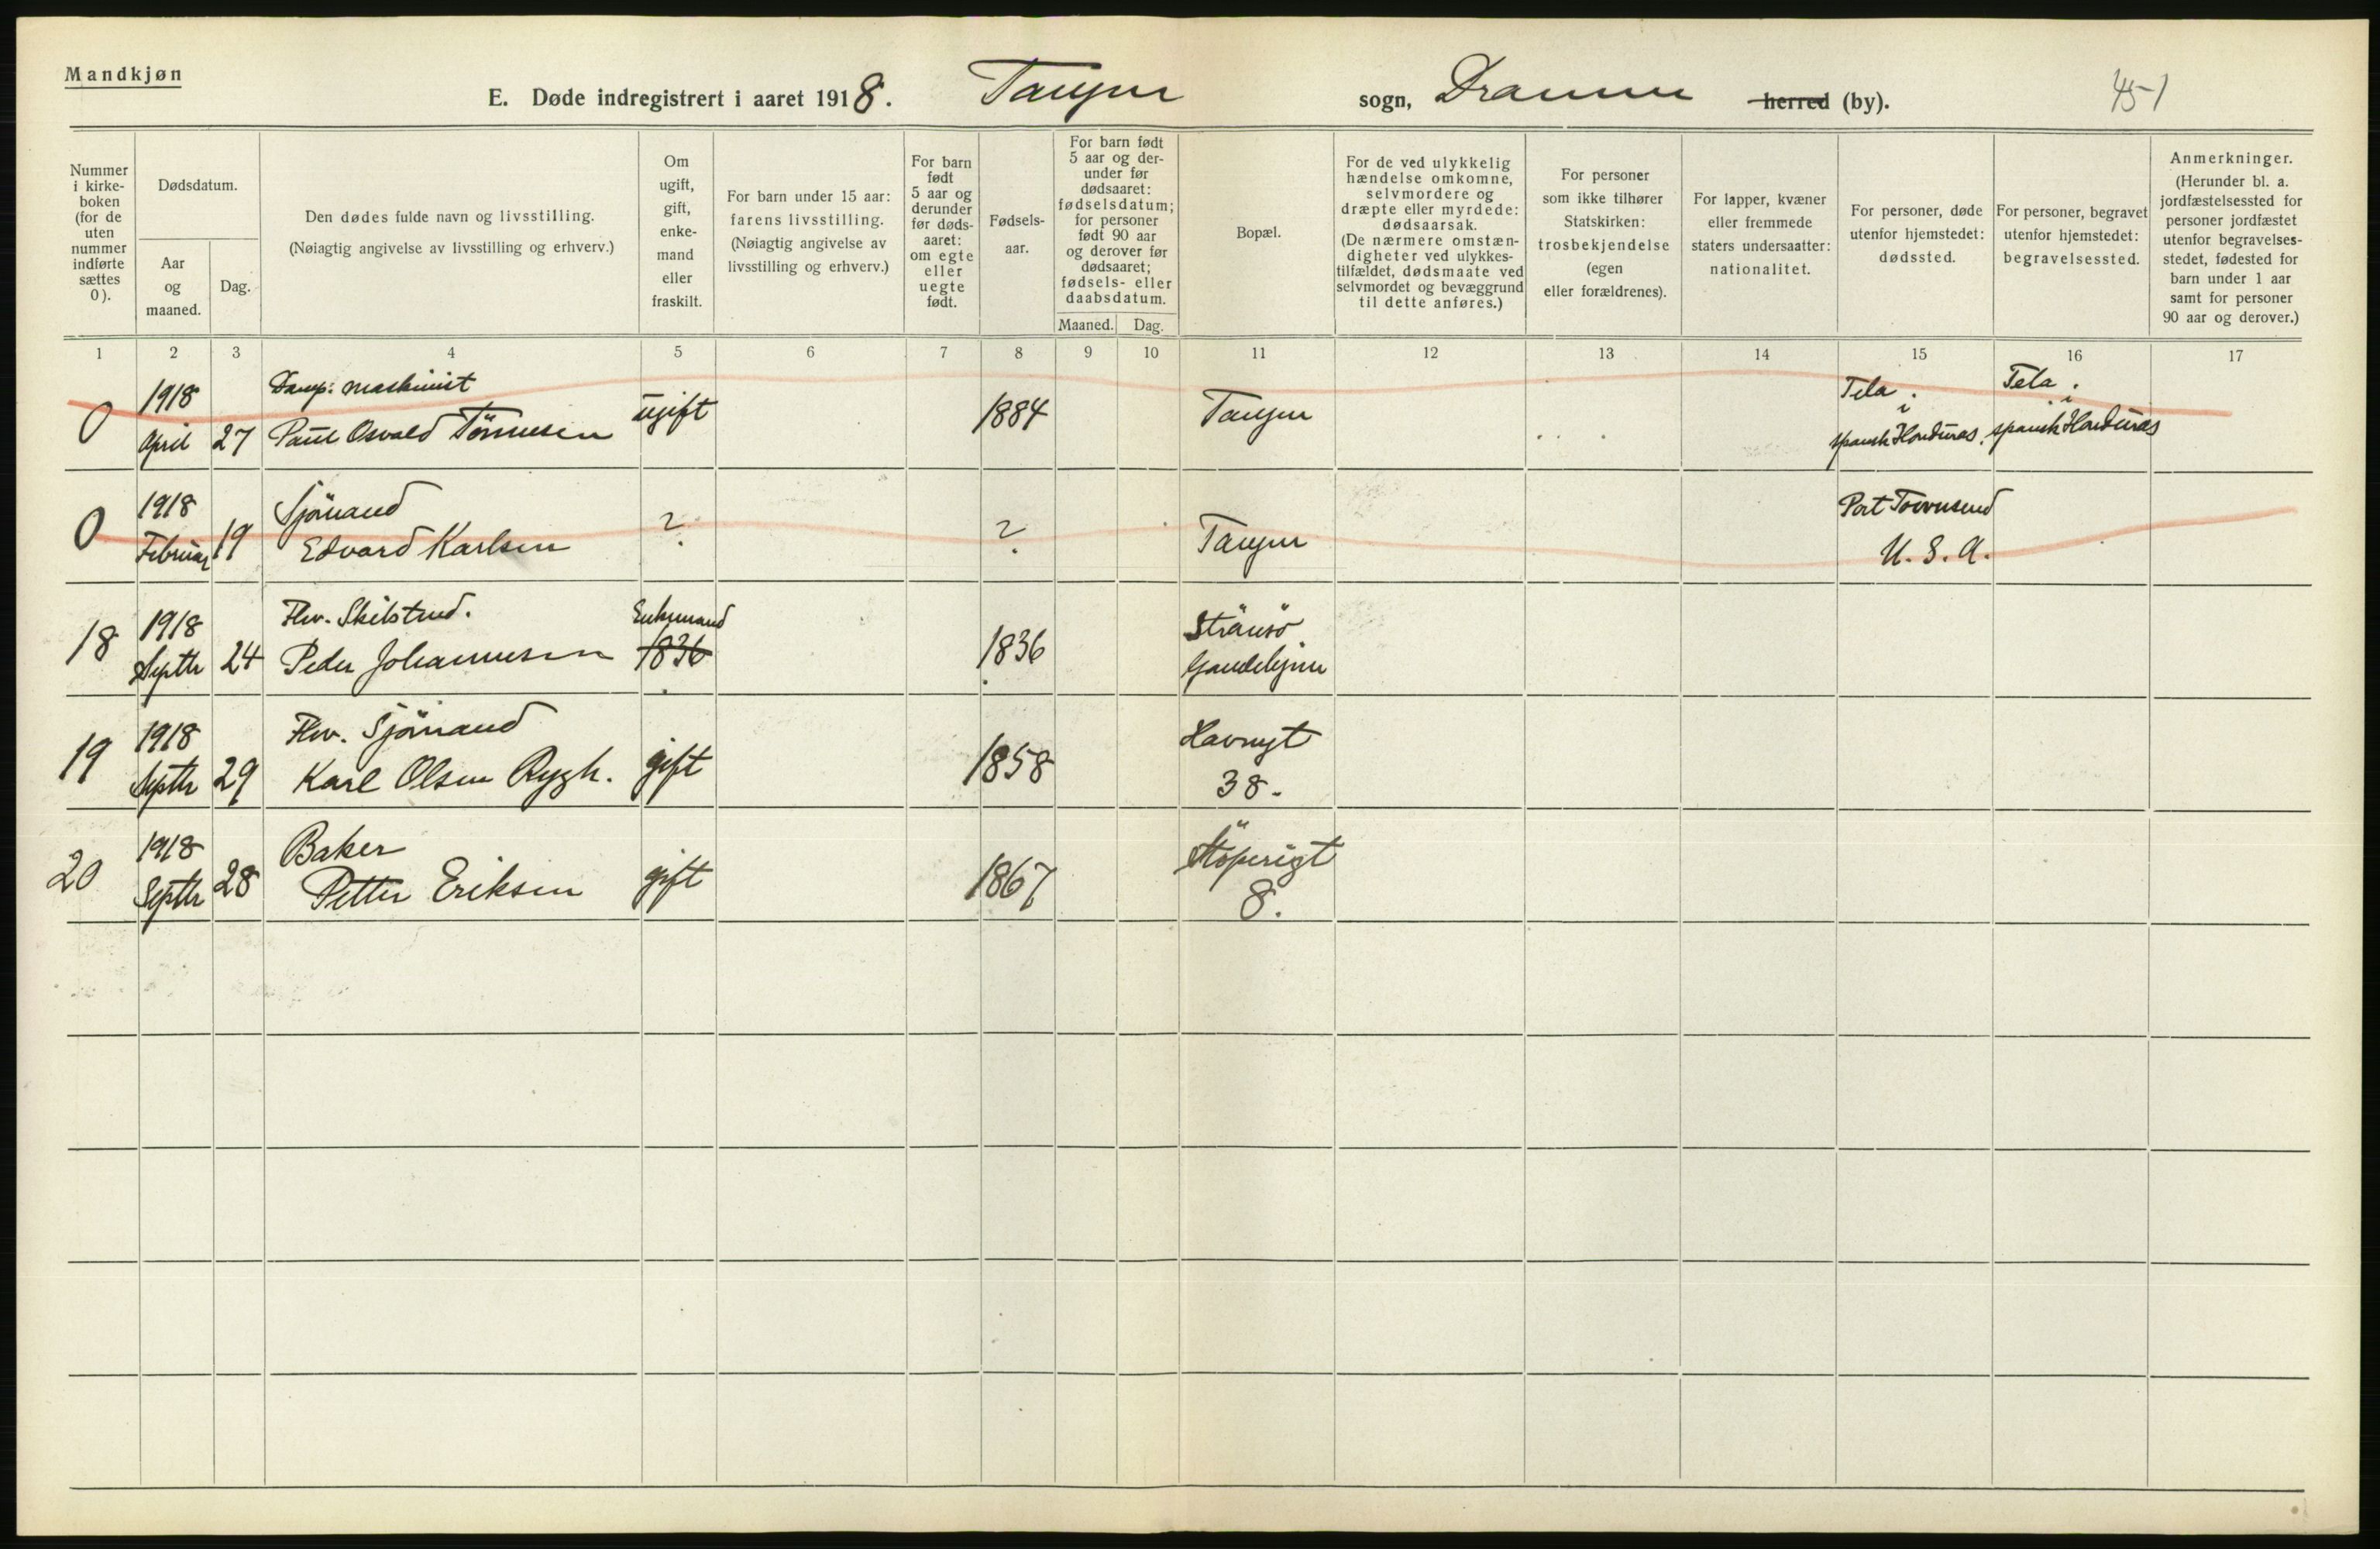 Mandkjøn
E. Døde indregistrert i aaret 1918. Tangen sogn, Drammen herred (by). 45-1
Nummer i kirke-boken (for de uten nummer indførte sættes 0).
Dødsdatum.
Aar og maaned.
Dag.
Den dødes fulde navn og livsstilling.
(Nøiagtig angivelse av livsstilling og erhverv.)
Om ugift, gift, enke-mand eller fraskilt.
For barn under 15 aar: farens livsstilling.
(Nøiagtig angivelse av livsstilling og erhverv.)
For barn født 5 aar og derunder før døds-aaret: om egte eller uegte født.
Fødsels-aar.
For barn født 5 aar og der-under før dødsaaret: fødselsdatum; for personer født 90 aar og derover før dødsaaret; fødsels- eller daabsdatum.
Maaned. Dag.
Bopæl.
For de ved ulykkelig hændelse omkomne, selvmordere og dræpte eller myrdede: dødsaarsak.
(De nærmere omstæn-digheter ved ulykkes-tilfældet, dødsmaate ved selvmordet og bevæggrund til dette anføres.)
For personer som ikke tilhører Statskirken: trosbekjendelse (egen eller forældrenes).
For lapper, kvæner eller fremmede staters undersaatter: nationalitet.
For personer, døde utenfor hjemstedet: dødssted.
For personer, begravet utenfor hjemstedet: begravelsessted.
Anmerkninger.
(Herunder bl. a. jordfæstelsessted for personer jordfæstet utenfor begravelses-stedet, fødested for barn under 1 aar samt for personer 90 aar og derover.)
1 2 3 4 5 6 7 8 9 10 11 12 13 14 15 16 17
1918 Damp: maskinist Tela Tela
0 April 27 Paul Osvald Tönnesen ugift 1884 Tangen i spansk Honduras. i spansk Honduras
1918 Sjömand Port Townsend
0 Februar 19 Edvard Karlsen ? ? Tangen U. S. A.
1918 Fhv. Enkemand Strömsö
18 Septbr 24 Peder Johannesen 1836 1836 Gamlehjem
1918 Fhv. Sjömand Havnegt
19 Septbr 29 Karl Olsen Rygh. gift 1858 38.
1918 Baker Støperigt
20 Septbr 28 Petter Eriksen gift 1867 8.